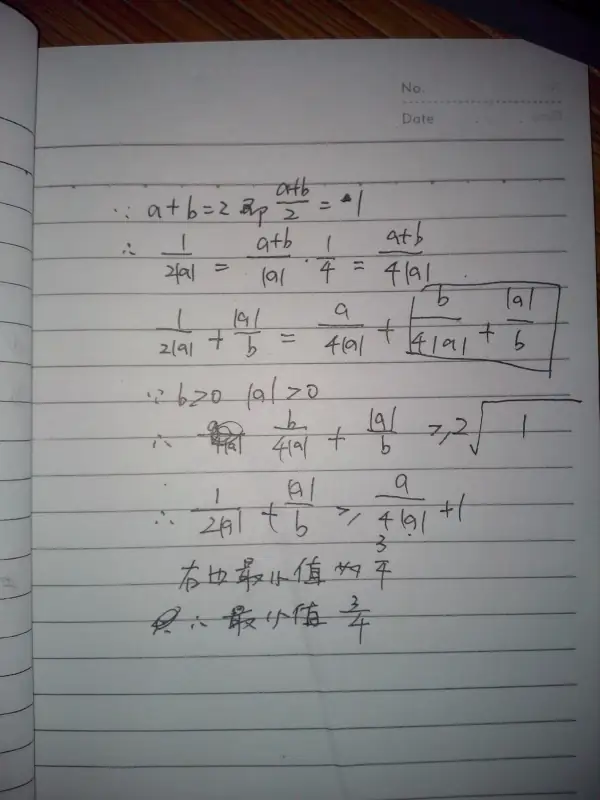 No.
Date
∵ a+b=2 即 (a+b)/2 = 1
∴ 1/(2|a|) = (a+b)/|a| · 1/4 = (a+b)/(4|a|)
1/(2|a|) + |a|/b = a/(4|a|) + b/(4|a|) + |a|/b
∵ b>0 |a|>0
∴ b/(4|a|) + |a|/b ≥ 2√1
∴ 1/(2|a|) + |a|/b ≥ a/(4|a|) + 1
右边最小值为 3/4
∴ 最小值 3/4